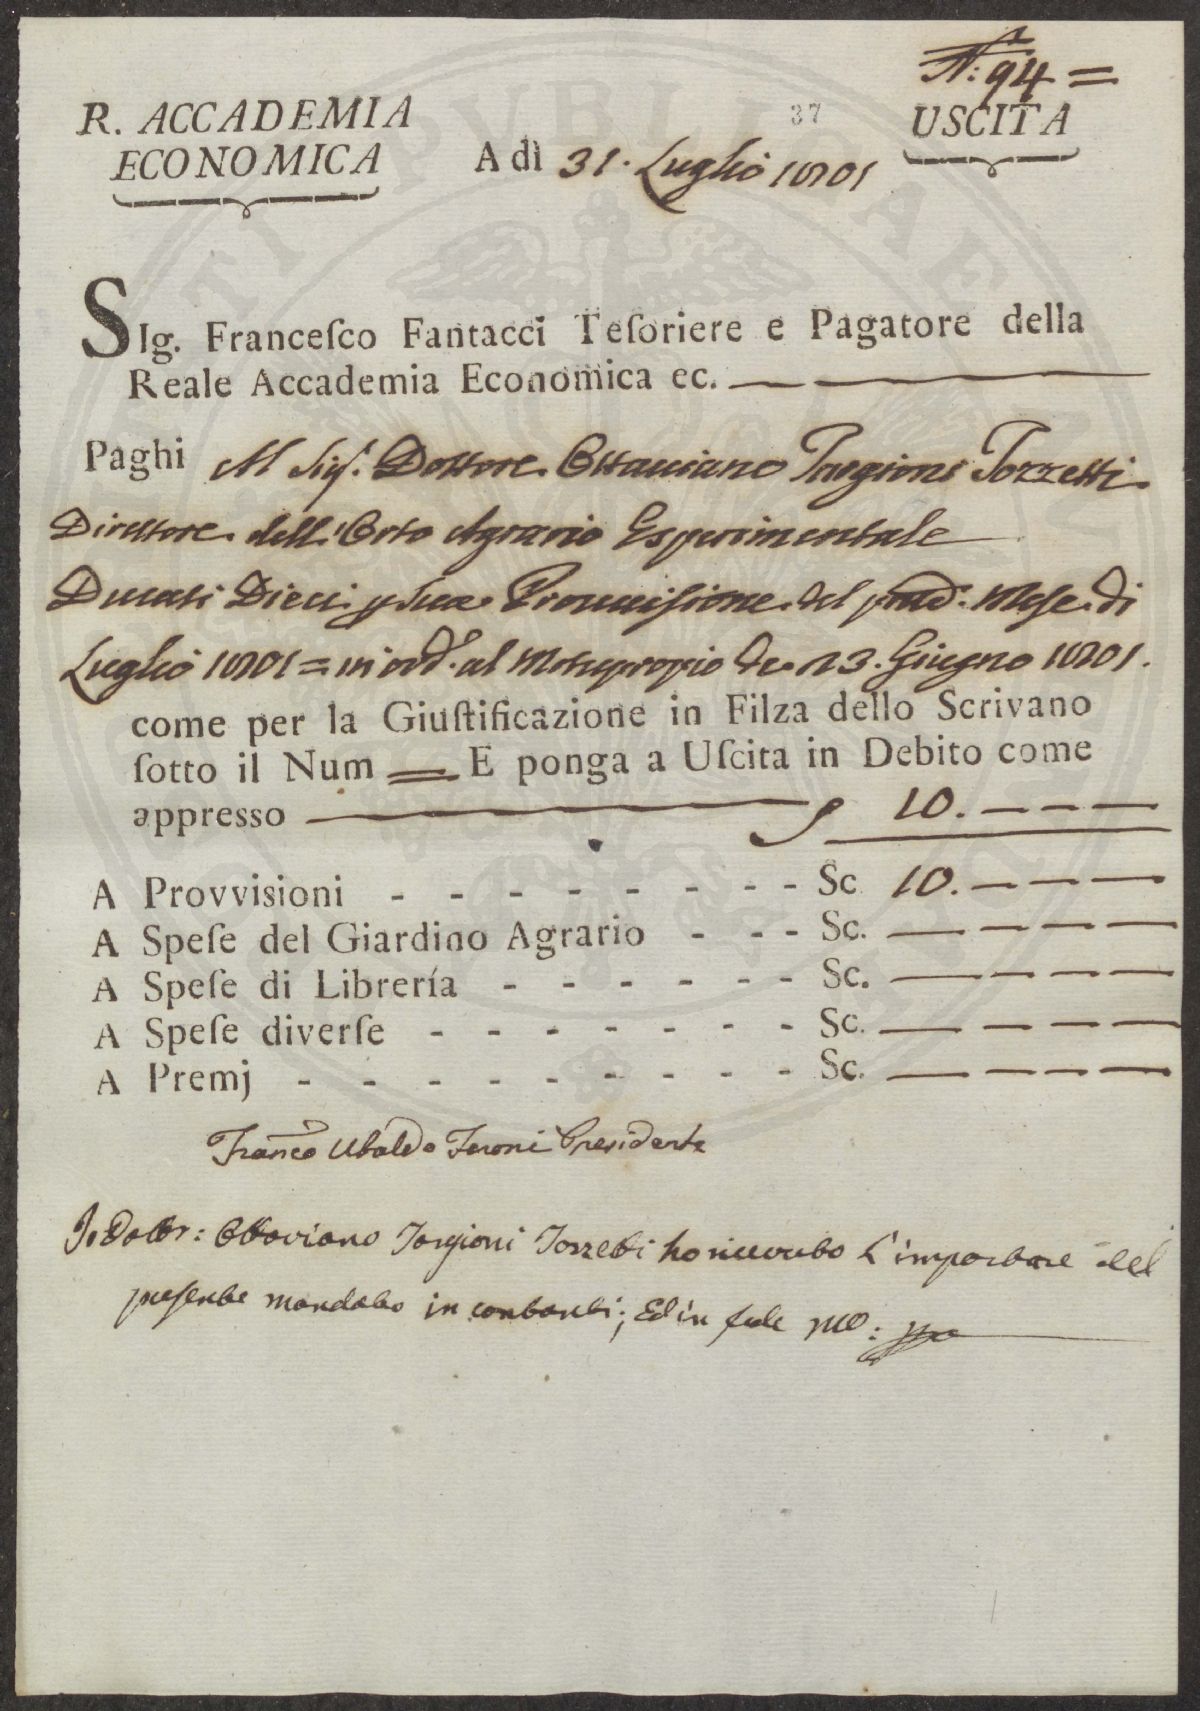 N: 94 =
R. ACCADEMIA
ECONOMICA
37
USCITA
A dì 31. Luglio 1801
SIg. Franceſco Fantacci Teſoriere e Pagatore della
Reale Accademia Economica ec.
Paghi Al Sig.r Dottore Ottaviano Targioni Tozzetti
Direttore dell'Orto Agrario Esperimentale
Ducati Dieci p sua Provvisione del pnd. Mese di
Luglio 1801 = in ord. al Motuproprio de 23. Giugno 1801.
come per la Giuſtificazione in Filza dello Scrivano
ſotto il Num = E ponga a Uſcita in Debito come
appresso 10.
A Provvisioni - - - - - - - - Sc 10.
A Speſe del Giardino Agrario - - - Sc.
A Speſe di Librería - - - - - - Sc.
A Speſe diverſe - - - - - - - Sc.
A Premj - - - - - - - - - Sc.
Franco Ubaldo Feroni Presidente
Io Dottr: Ottaviano Targioni Tozzetti ho ricevuto L'importare del
presente mandato in contanti; Ed in fede mo: